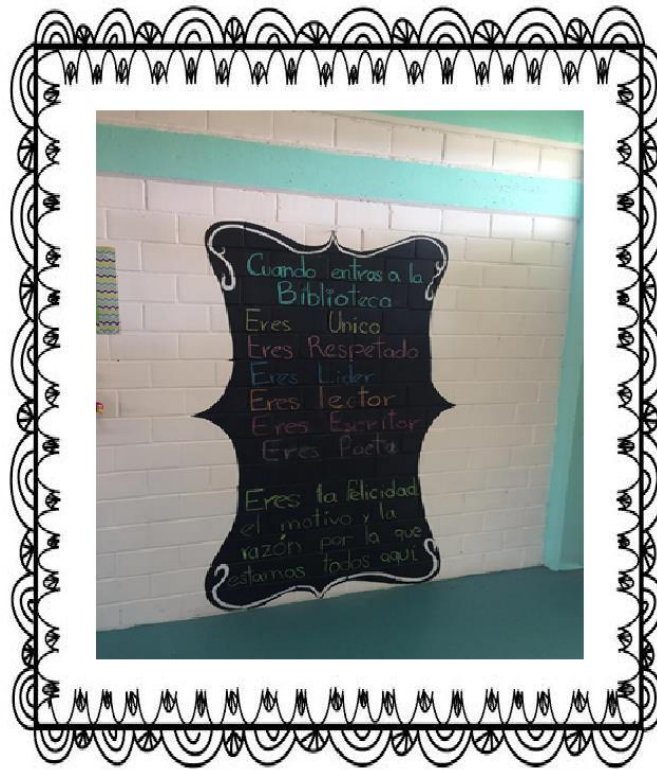 Cuando entras a la
Biblioteca
Eres Unico
Eres Respetado
Eres Lider
Eres lector
Eres Escritor
Eres Poeta
Eres la felicidad
el motivo y la
razón por la que
estamos todos aquí